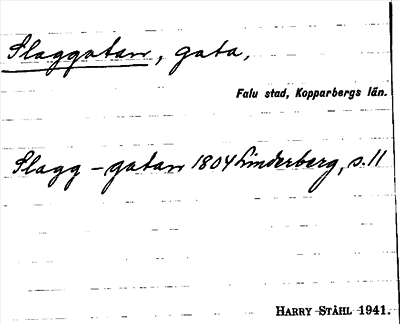 Slaggatan, gata,
Falu stad, Kopparbergs län.
Slagg - gatan 1804 Linderberg, s. 11
HARRY STÅHL 1941.